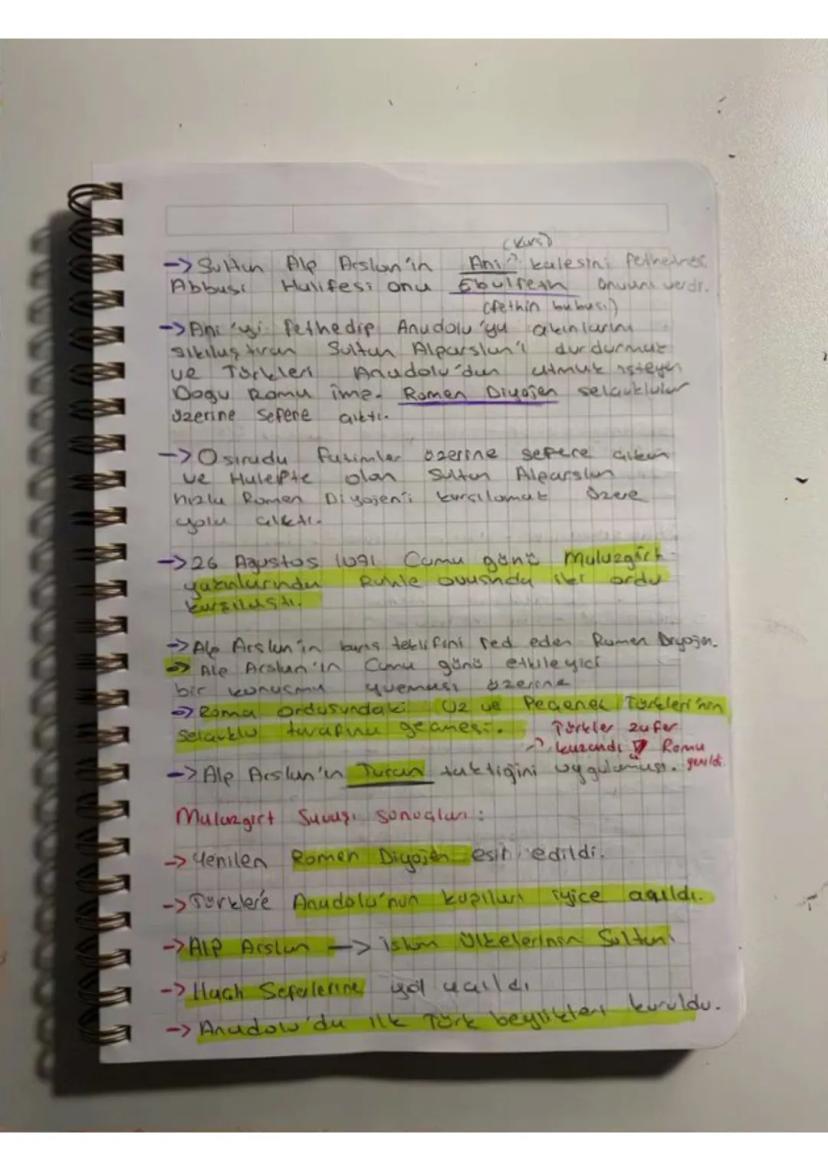 (Kars)
-> Sultan Alp Arslan'ın Ani kalesini fethetmesi
Abbasi Halifesi onu Ebulfeth ünvanı verdi.
(fethin babası)
-> Ani'yi fethedip Anadolu'ya akınlarını
sıkılaştıran Sultan Alparslan'ı durdurmak
ve Türkleri Anadolu'dan atmak isteyen
Doğu Roma İmp. Romen Diyojen selçuklular
üzerine sefere çıktı.
-> O sırada Fatimiler üzerine sefere çıkan
ve Halepte olan Sultan Alparslan
hızla Romen Diyojen'i karşılamak üzere
yola çıktı.
-> 26 Ağustos 1071 Cuma günü Malazgirt
yakınlarında Rahle ovasında iki ordu
karşılaştı.
-> Alp Arslan'ın barış teklifini red eden Romen Diyojen.
-> Alp Arslan'ın Cuma günü etkileyici
bir konuşma yapması üzerine
-> Roma ordusundaki Uz ve Peçenek Türkleri'nin
selçuklu tarafına geçmesi. Türkler zafer
-> kazandı Roma
-> Alp Arslan'ın Turan taktiğini uygulaması. yenildi.
Malazgirt Savaşı sonuçları:
-> Yenilen Romen Diyojen esir edildi.
-> Türklere Anadolu'nun kapıları iyice açıldı.
-> Alp Arslan -> islam ülkelerinin Sultanı
-> Haçlı Seferlerine yol açıldı
-> Anadolu'da ilk Türk beylikleri kuruldu.